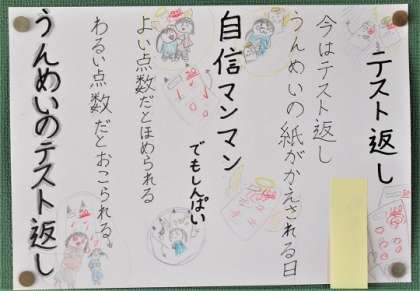 テスト返し
今はテスト返し
うんめいの紙がかえされる日
自信マンマン
でもしんぱい
よい点数だとほめられる
わるい点数だとおこられる
うんめいのテスト返し